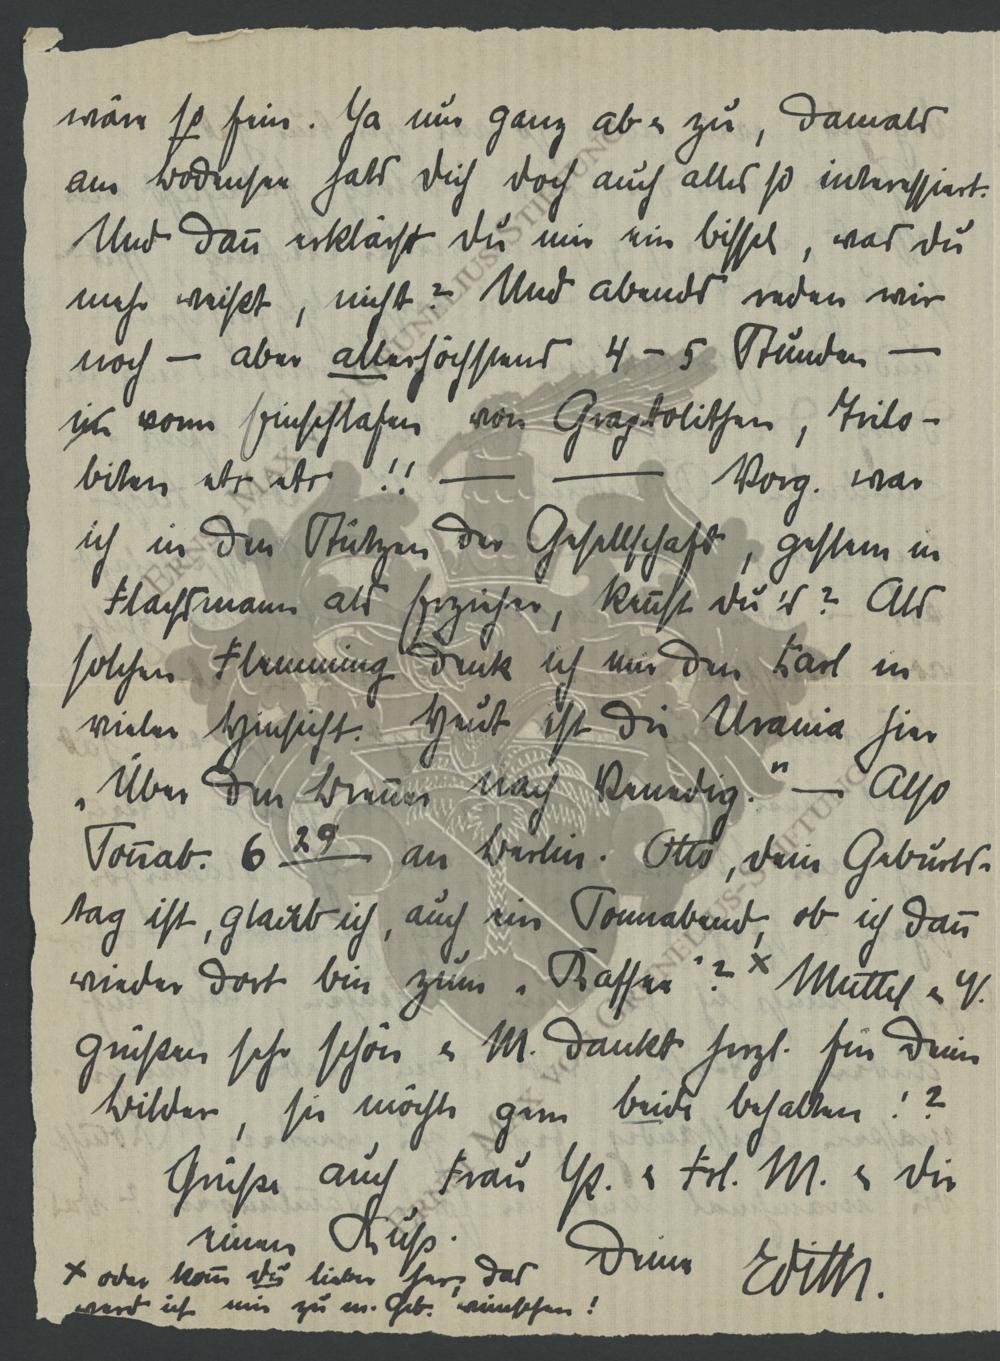 wäre so fein. Ja nur ganz ab u zu, damals
am Bodensee hats dich doch auch alles so interessiert.
Und dan̄ erklärst du mir ein bissel, was du
mehr weißt, nicht? Und abends reden wir
noch — aber allerhöchstens 4 – 5 Stunden —
vorm Einschlafen von Graptolithen, Trilo-
biten etc etc !! — — Vorg. war
ich in den Stützen der Gesellschaft, gestern in
Flachsmann als Erzieher, kenn̄st du's? Als
solchen Flemming denk ich mir den Karl in
vieler Hinsicht. Heut ist die Urania hier
„Über den Bren̄er nach Venedig." — Also
Son̄ab. 6 29 an Berlin. Otto, dein Geburts-
tag ist, glaub ich, auch ein Sonnabend, ob ich dan̄
wieder dort bin zum „ "? x Muttel u V.
grüßen sehr schön u M. dankt herzl. für Deine
Bilder, sie möchte gern beide behalten!?
Grüße auch Frau Hp. u Frl. M. u dir
einen Kuß. Deine Edith.
x oder kom̄ du lieber her, das
werd ich mir zu m. Geb. wünschen!
MAX VON CORNELIUS-STIFTUNG